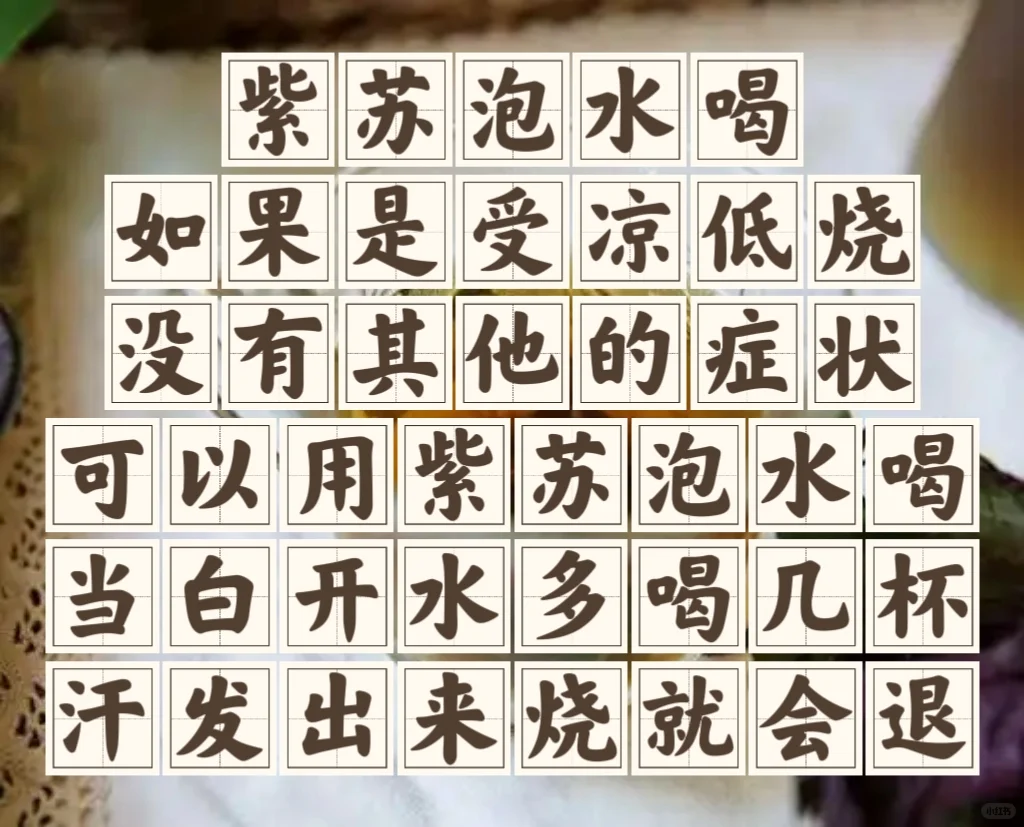 紫苏泡水喝
如果是受凉低烧
没有其他的症状
可以用紫苏泡水喝
当白开水多喝几杯
汗发出来烧就会退
小红书